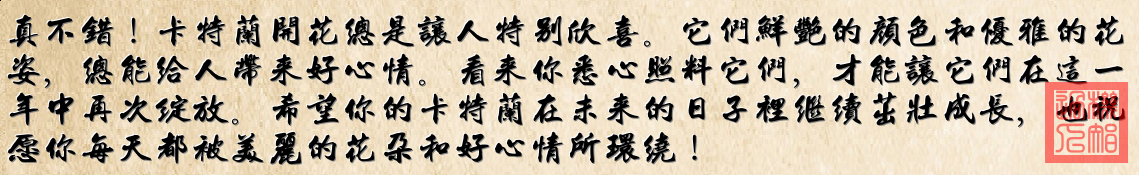 真不錯！卡特蘭開花總是讓人特别欣喜。它們鮮艷的顔色和優雅的花
姿，總能給人帶來好心情。看來你悉心照料它們，才能讓它們在這一
年中再次綻放。希望你的卡特蘭在未來的日子裡继續茁壯成長，也祝
愿你每天都被美麗的花朵和好心情所環繞！